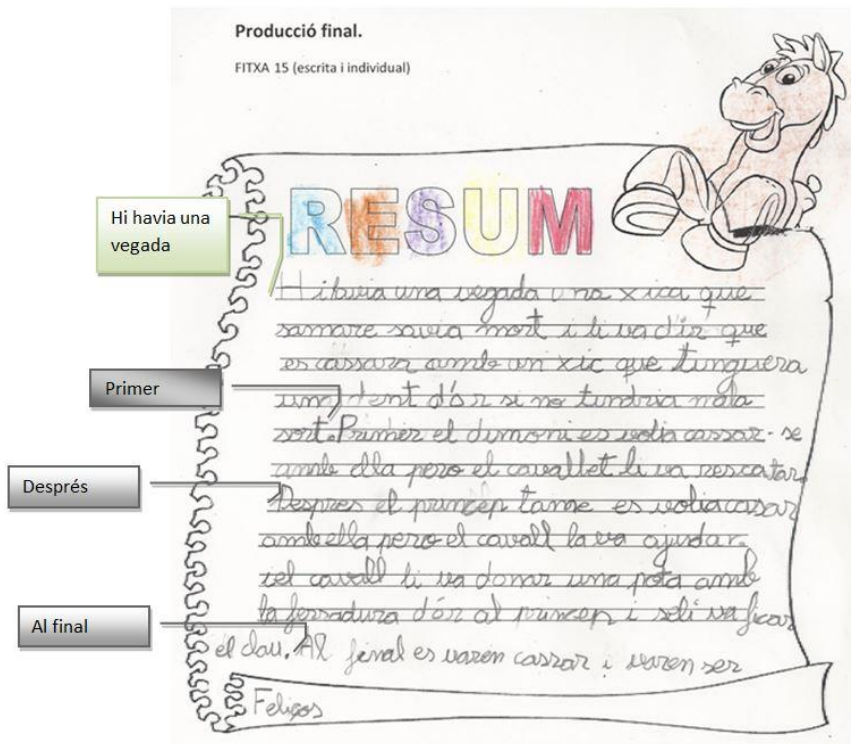 Producció final.
FITXA 15 (escrita i individual)
RESUM
Hi havia una
vegada
Hi havia una vegada una xica que
samare savia mort i li va d'ir que
es cassara amb un xic que tunguera
una dent d'ór si no tundria mala
sort. Primer el dimoni es volia cassar-se
amb ella pero el cavallet li va rescatar.
Despres el princep tame es volia casar
amb ella pero el cavall la va ajudar.
iel cavall li va donar una pota amb
la ferradura d'ór al princep i seli va ficar
el clau. Al final es varen cassar i varen ser
Feliços
Primer
Després
Al final